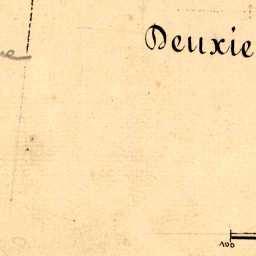 Deuxie
100